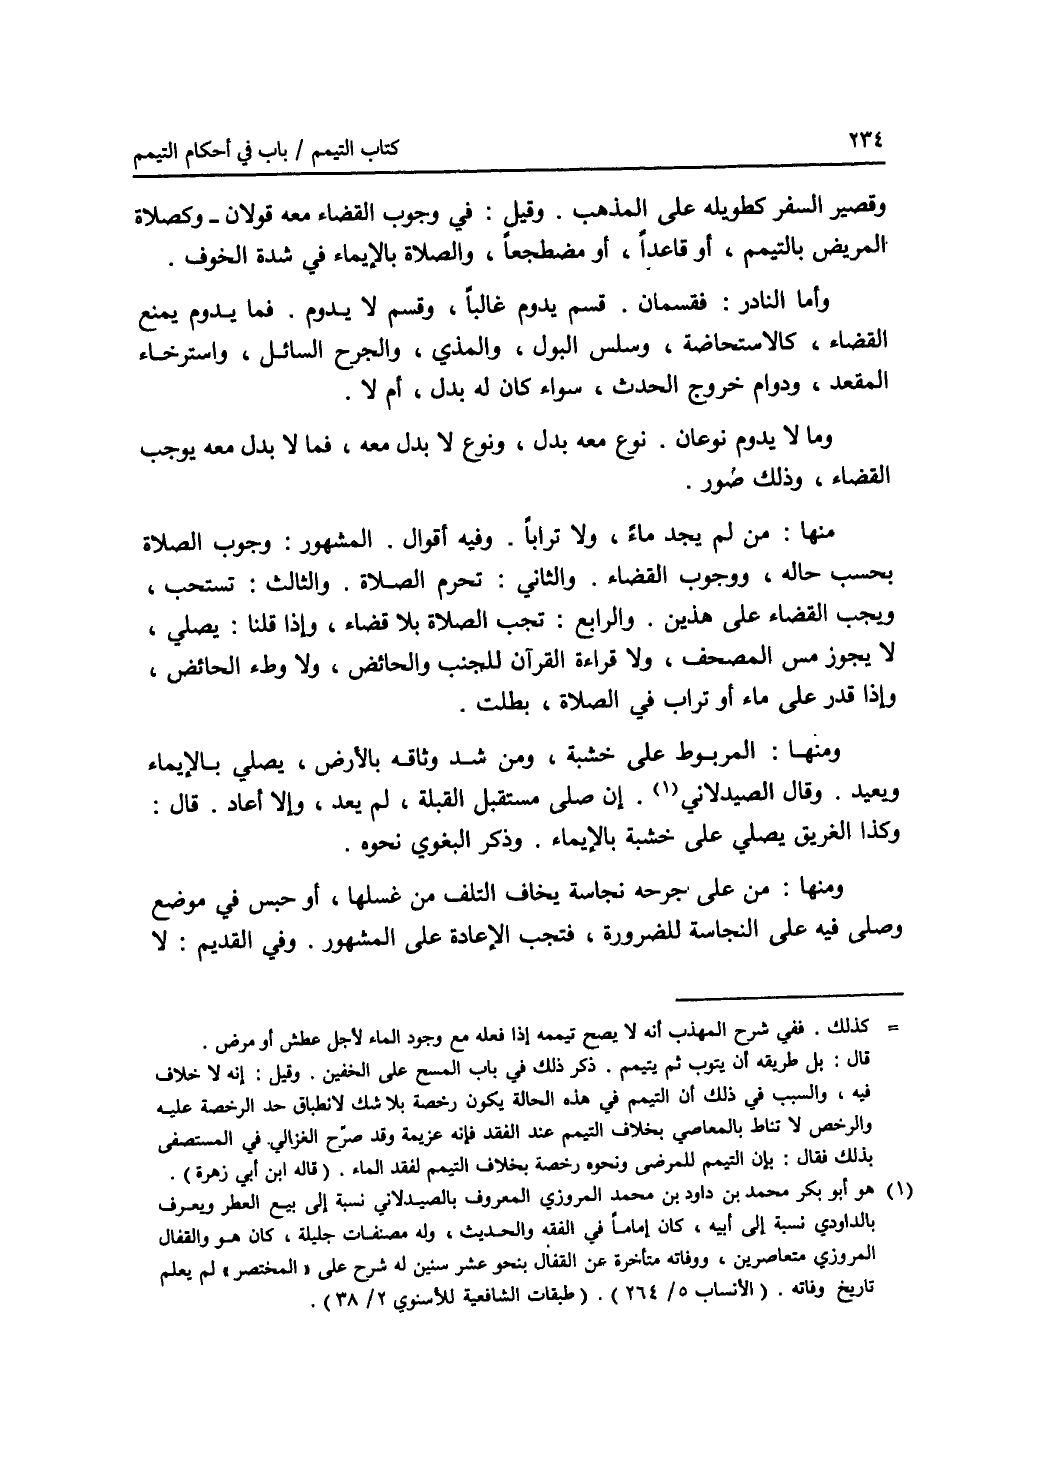 ٢٣٤
كتاب التيمم / باب في أحكام التيمم
وقصير السفر كطويله على المذهب . وقيل : في وجوب القضاء معه قولان ـ وكصلاة
المريض بالتيمم ، أو قاعداً ، أو مضطجعاً ، والصلاة بالإيماء في شدة الخوف .
وأما النادر : فقسمان . قسم يدوم غالباً ، وقسم لا يـدوم . فما يـدوم يمنع
القضاء ، كالاستحاضة ، وسلس البول ، والمذي ، والجرح السائـل ، واسترخـاء
المقعد ، ودوام خروج الحدث ، سواء كان له بدل ، أم لا .
وما لا يدوم نوعان . نوع معه بدل ، ونوع لا بدل معه ، فما لا بدل معه يوجب
القضاء ، وذلك صُور .
منها : من لم يجد ماءً ، ولا تراباً . وفيه أقوال . المشهور : وجوب الصلاة
بحسب حاله ، ووجوب القضاء . والثاني : تحرم الصـلاة . والثالث : تستحب ،
ويجب القضاء على هذين . والرابع : تجب الصلاة بلا قضاء ، وإذا قلنا : يصلي ،
لا يجوز مس المصحف ، ولا قراءة القرآن للجنب والحائض ، ولا وطء الحائض ،
وإذا قدر على ماء أو تراب في الصلاة ، بطلت .
ومنهـا : المربـوط على خشبة ، ومن شـد وثاقـه بالأرض ، يصلي بـالإيماء
ويعيد . وقال الصيدلاني(١) . إن صلى مستقبل القبلة ، لم يعد ، وإلا أعاد . قال :
وكذا الغريق يصلي على خشبة بالإيماء . وذكر البغوي نحوه .
ومنها : من على جرحه نجاسة يخاف التلف من غسلها ، أو حبس في موضع
وصلى فيه على النجاسة للضرورة ، فتجب الإعادة على المشهور . وفي القديم : لا
= كذلك . ففي شرح المهذب أنه لا يصح تيممه إذا فعله مع وجود الماء لأجل عطش أو مرض .
قال : بل طريقه أن يتوب ثم يتيمم . ذكر ذلك في باب المسح على الخفين . وقيل : إنه لا خلاف
فيه ، والسبب في ذلك أن التيمم في هذه الحالة يكون رخصة بلا شك لانطباق حد الرخصة عليـه
والرخص لا تناط بالمعاصي بخلاف التيمم عند الفقد فإنه عزيمة وقد صرّح الغزالي في المستصفى
بذلك فقال : بإن التيمم للمرضى ونحوه رخصة بخلاف التيمم لفقد الماء . ( قاله ابن أبي زهرة ) .
(١) هو أبو بكر محمد بن داود بن محمد المروزي المعروف بالصيدلاني نسبة إلى بيـع العطر ويعـرف
بالداودي نسبة إلى أبيه ، كان إمامـاً في الفقه والحـديث ، وله مصنفـات جليلة ، كان هـو والقفال
المروزي متعاصرين ، ووفاته متأخرة عن القفال بنحو عشر سنين له شرح على « المختصر » لم يعلم
تاريخ وفاته . ( الأنساب ٥/ ٢٦٤ ) . ( طبقات الشافعية للأسنوي ٢/ ٣٨ ) .